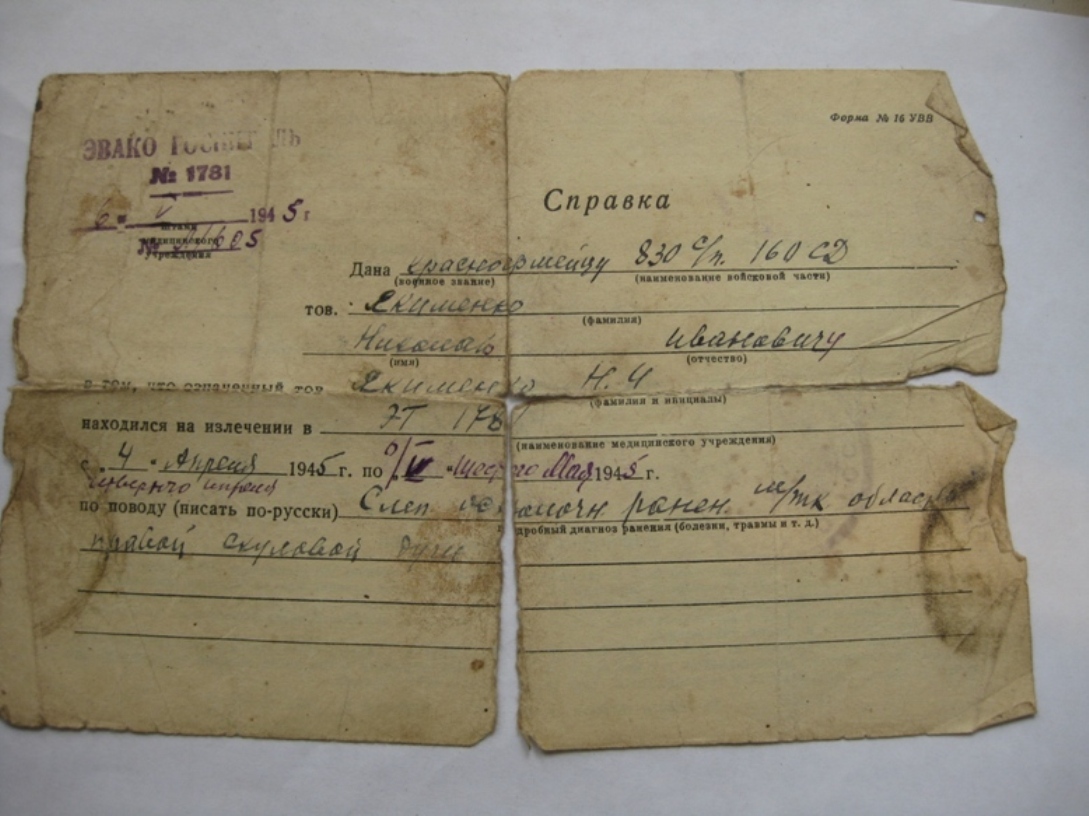 Форма № 16 УВВ
ЭВАКО ГОСПИТАЛЬ
№ 1781
6 " V 1945 г
штамп
медицинского
учреждения
№
Справка
Дана красноармейцу 830 с/п. 160 СД
(военное звание) (наименование войсковой части)
тов. Якименко
(фамилия)
Николаю Ивановичу
(имя) (отчество)
в том, что означенный тов Якименко Н. И
(фамилия и инициалы)
находился на излечении в ЭГ 178
(наименование медицинского учреждения)
с " 4 " Апреля 1945 г. по Мая 1945 г.
четвертого апреля
по поводу (писать по-русски) Слеп осколочн ранен м/тк област
подробный диагноз ранения (болезни, травмы и т. д.)
правой скуловой дуги